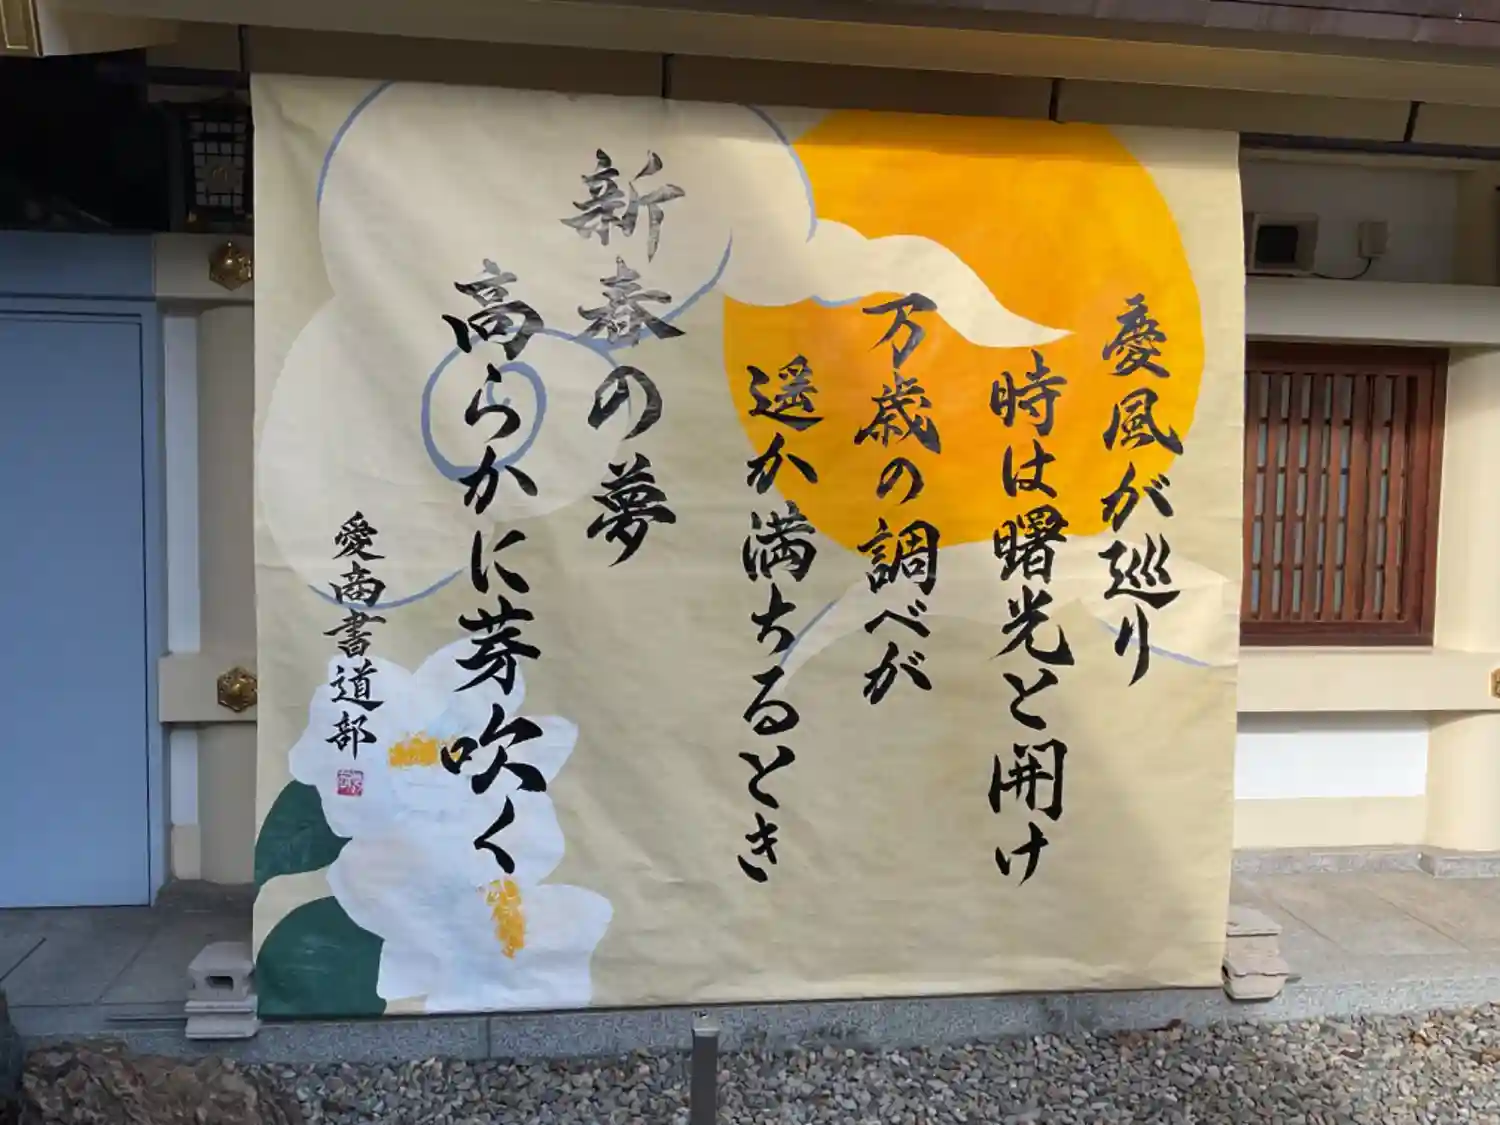 愛風が巡り
時は曙光と開け
万歳の調べが
遥か満ちるとき
新春の夢
高らかに芽吹く
愛商書道部